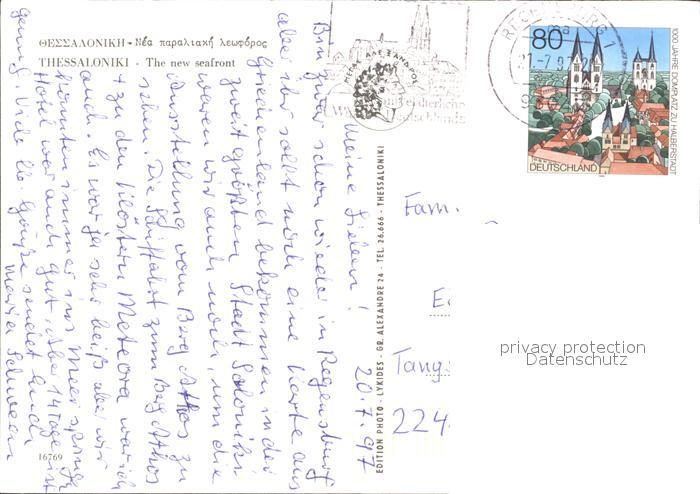 ΘΕΣΣΑΛΟΝΙΚΗ - Νέα παραλιακή λεωφόρος
THESSALONIKI - The new seafront
20.7.97
Meine Lieben!
Bin zwar schon wieder in Regensburg
aber ihr sollt noch eine Karte aus
Griechenland bekommen, in der
zweitgrößten Stadt Saloniki
waren wir auch noch, um die
Ausstellung vom Berg Athos zu
sehen. Die Schiffahrt zum Berg Athos
+ zu den Klöstern Meteora war ich
auch. Es war ja sehr heiß aber wir
konnten immer ins Meer springen
Hotel war auch gut. Aber 14 Tage ist
genug. Viele lb. Grüße sendet Euch
Maria
16769
EDITION PHOTO - LYKIDES - GR. ALEXANDRE 24 - TEL 26.666 - THESSALONIKI
ΜΕΓΑΣ ΑΛΕΞΑΝΔΡΟΣ
REGENSBURG 1
80
1000 JAHRE DOMPLATZ ZU HALBERSTADT
DEUTSCHLAND
Fam.
privacy protection
Datenschutz
224